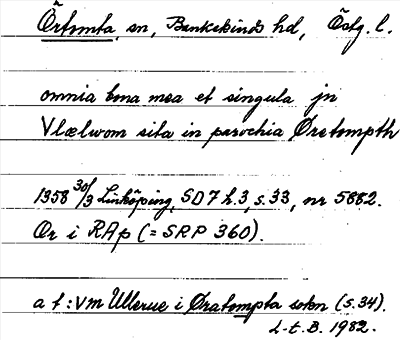 Örtomta sn, Bankekinds hd, Östg. l.
omnia bona mea et singula jn
Vlælwom sita in parochia Øratompth
1358 30/3 Linköping, SD 7 h.3, s. 33, nr 5882.
Or i RAp (= SRP 360).
a t: Vm Ullerue i Øratompta sokn (s. 34).
L-t. B. 1982.